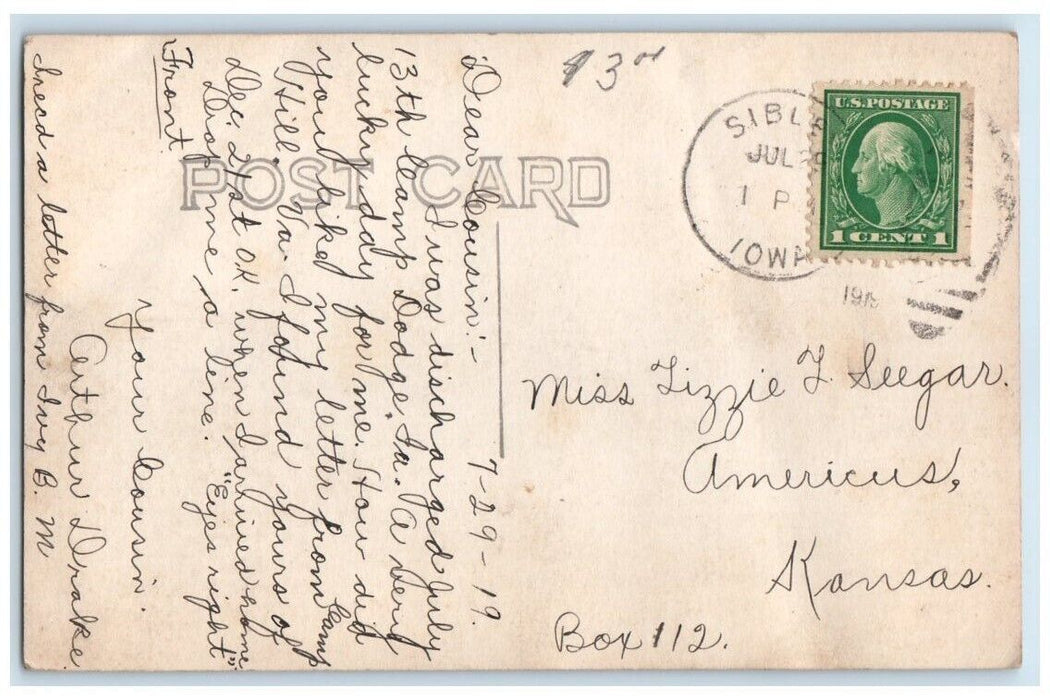 $3.00
POST CARD
SIBLEY
JUL 29
1 P
IOWA
1919
U.S. POSTAGE
1 CENT 1
7-29-19.
Dear Cousin:-
I was discharged July
13th Camp Dodge, Ia. "A very
lucky day for me. How did
you like my letter from Camp
Hill, Va. I found yours of
Dec. 21st OK. when I arrived home
Drop me a line. "Eyes right"
Front
Your Cousin.
Arthur Drake
Ired a letter from Ivy B. M
Miss Lizzie F. Seegar.
Americus,
Kansas.
Box 112.